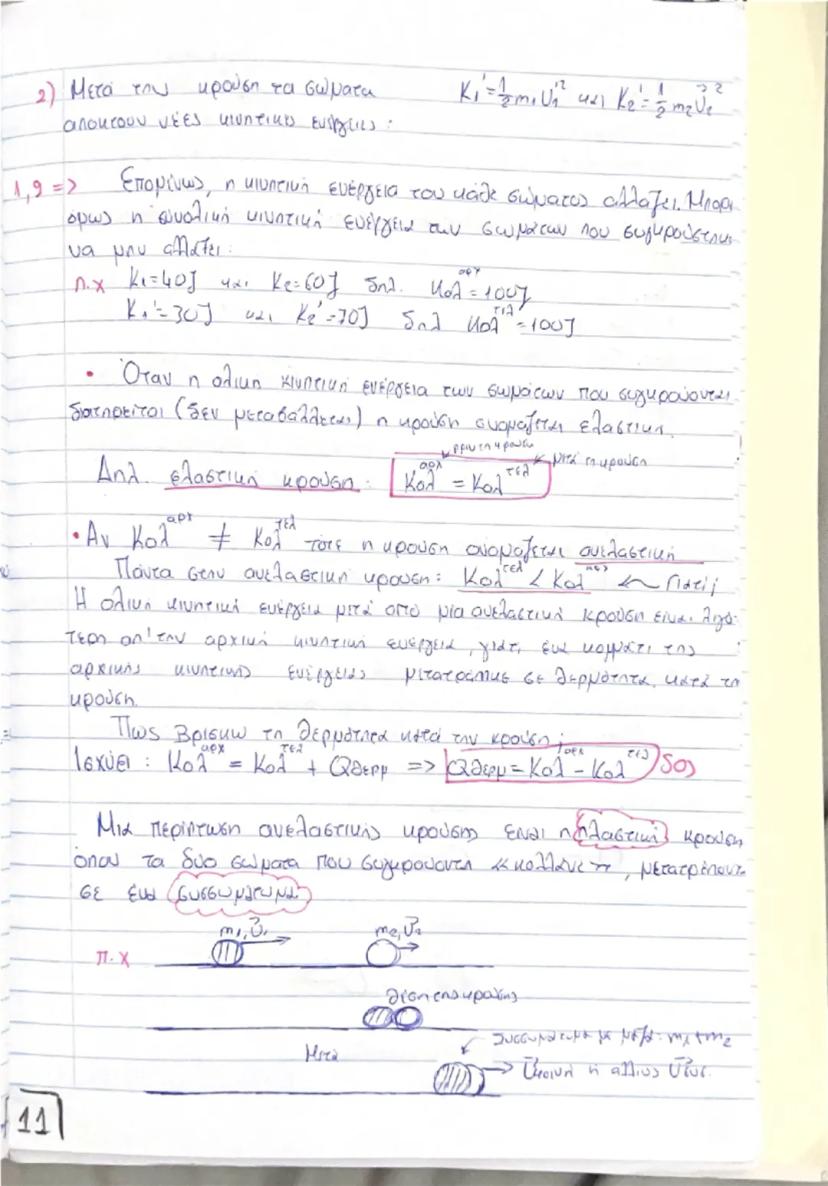 2) Μετά της κρούση τα σώματα K₁'=½m₁υ₁'² και K₂'=½m₂υ₂'²
αποκτούν νέες κινητικές ενέργειες:
1,9 => Επομένως, η κινητική ενέργεια του κάθε σώματος αλλάζει. Μπορεί
όμως η συνολική κινητική ενέργεια των σωμάτων που συγκρούστηκαν
να μην αλλάξει:
π.χ K₁=40J και K₂=60J δηλ. Κολ^αρχ=100J
K₁'=30J και K₂'=70J δηλ Κολ^τελ=100J
• Όταν η ολική κινητική ενέργεια των σωμάτων που συγκρούονται
διατηρείται (δεν μεταβάλλεται) η κρούση ονομάζεται ελαστική.
πριν τη κρούση
μετά τη κρούση
Δηλ. ελαστική κρούση: Κολ^αρχ = Κολ^τελ
• Αν Κολ^αρχ ≠ Κολ^τελ τότε η κρούση ονομάζεται ανελαστική
Πάντα στην ανελαστική κρούση: Κολ^τελ < Κολ^αρχ ← Γιατί;
Η ολική κινητική ενέργεια μετά από μία ανελαστική κρούση είναι λιγό-
τερη απ' την αρχική κινητική ενέργεια, γιατί ένα κομμάτι της
αρχικής κινητικής ενέργειας μετατράπηκε σε θερμότητα κατά τη
κρούση.
Πως βρίσκω τη θερμότητα κατά την κρούση;
Ισχύει: Κολ^αρχ = Κολ^τελ + Qθερμ => Qθερμ = Κολ^αρχ - Κολ^τελ SOS
Μια περίπτωση ανελαστικής κρούσης είναι η πλαστική κρούση
όπου τα δύο σώματα που συγκρούονται «κολλάνε», μετατρέπονται
σε ένα συσσωμάτωμα
m₁,υ₁ m₂,υ₂
π.χ
θέση επικρούσης
Συσσωμάτωμα με μάζα: m₁+m₂
Μετά
υκοινή ή αλλιώς υσυσ.
11